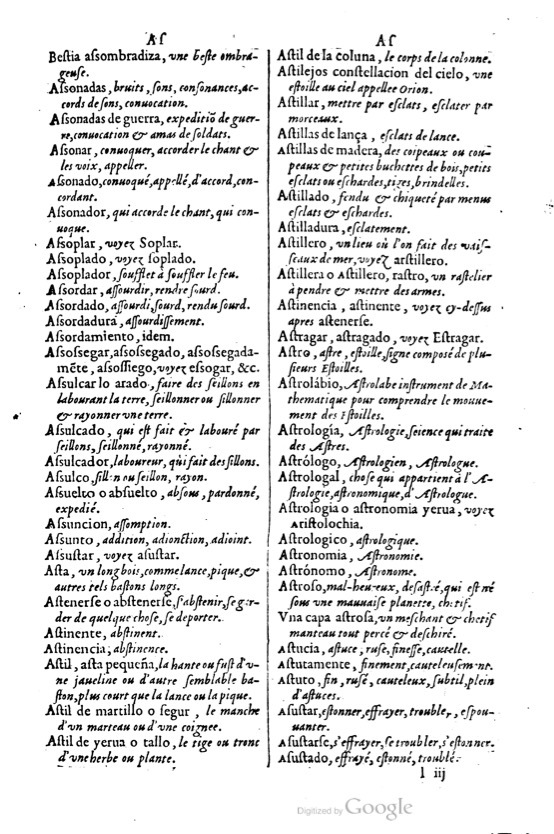 Aſ
Beſtia aſſombradiza, vne beſte ombra-
geuſe.
Aſſonadas, bruits, ſons, conſonances, ac-
cords de ſons, conuocation.
Aſſonadas de guerra, expeditiõ de guer-
re, conuocation & amas de ſoldats.
Aſſonar, conuoquer, accorder le chant &
les voix, appeller.
Aſſonado, conuoqué, appellé, d'accord, con-
cordant.
Aſſonador, qui accorde le chant, qui con-
uoque.
Aſſoplar, voyez Soplar.
Aſſoplado, voyez ſoplado.
Aſſoplador, ſoufflet à ſouffler le feu.
Aſſordar, aſſourdir, rendre ſourd.
Aſſordado, aſſourdi, ſourd, rendu ſourd.
Aſſordadura, aſſourdiſſement.
Aſſordamiento, idem.
Aſſoſſegar, aſſoſſegado, aſſoſſegada-
mẽte, aſſoſſiego, voyez eſſogar, &c.
Aſſulcar lo arado, faire des ſeillons en
labourant la terre, ſeillonner ou ſillonner
& rayonner vne terre.
Aſſulcado, qui eſt fait & labouré par
ſeillons, ſeillonné, rayonné.
Aſſulcador, laboureur, qui fait des ſillons.
Aſſulco, ſillon ou ſeillon, rayon.
Aſſuelto o abſuelto, abſous, pardonné,
expedié.
Aſſuncion, aſſomption.
Aſſunto, addition, adionction, adioint.
Aſſuſtar, voyez aſuſtar.
Aſta, vn long bois, comme lance, pique, &
autres tels baſtons longs.
Aſtenerſe o abſtenerſe, s'abſtenir, ſe gar-
der de quelque choſe, ſe deporter.
Aſtinente, abſtinent.
Aſtinencia, abſtinence.
Aſtil, aſta pequeña, la hante ou fuſt d'v-
ne jaueline ou d'autre ſemblable ba-
ſton, plus court que la lance ou la pique.
Aſtil de martillo o ſegur, le manche
d'vn marteau ou d'vne coignee.
Aſtil de yerua o tallo, le tige ou tronc
d'vne herbe ou plante.
Aſ
Aſtil de la coluna, le corps de la colonne.
Aſtilejos conſtellacion del cielo, vne
eſtoille au ciel appellee Orion.
Aſtillar, mettre par eſclats, eſclater par
morceaux.
Aſtillas de lança, eſclats de lance.
Aſtillas de madera, des coipeaux ou cou-
peaux & petites buchettes de bois, petits
eſclats ou eſchardes, tiges, brindelles.
Aſtillado, fendu & chiqueté par menus
eſclats & eſchardes.
Aſtilladura, eſclatement.
Aſtillero, vn lieu où l'on fait des vaiſ-
ſeaux de mer, voyez arſtillero.
Aſtillera o Aſtillero, raſtro, vn raſtelier
à pendre & mettre des armes.
Aſtinencia, aſtinente, voyez cy-deſſus
apres aſtenerſe.
Aſtragar, aſtragado, voyez Eſtragar.
Aſtro, aſtre, eſtoille, ſigne compoſé de plu-
ſieurs Eſtoilles.
Aſtrolábio, Aſtrolabe inſtrument de Ma-
thematique pour comprendre le mouue-
ment des Eſtoilles.
Aſtrología, Aſtrologie, ſcience qui traite
des Aſtres.
Aſtrólogo, Aſtrologien, Aſtrologue.
Aſtrologal, choſe qui appartient à l'A-
ſtrologie, aſtronomique, d'Aſtrologue.
Aſtrologia o aſtronomia yerua, voyez
Ariſtolochia.
Aſtrologico, aſtrologique.
Aſtronomia, Aſtronomie.
Aſtrónomo, Aſtronome.
Aſtroſo, mal-heureux, deſaſtré, qui eſt né
ſous vne mauuaiſe planette, chetif.
Vna capa aſtroſa, vn meſchant & chetif
manteau tout percé & deſchiré.
Aſtucia, aſtuce, ruſe, fineſſe, cautelle.
Aſtutamente, finement, cauteleuſement.
Aſtuto, fin, ruſé, cauteleux, ſubtil, plein
d'aſtuces.
Aſuſtar, eſtonner, effrayer, troubler, eſpou-
uanter.
Aſuſtarſe, s'effrayer, ſe troubler, s'eſtonner.
Aſuſtado, effrayé, eſtonné, troublé.
l iij
Digitized by Google